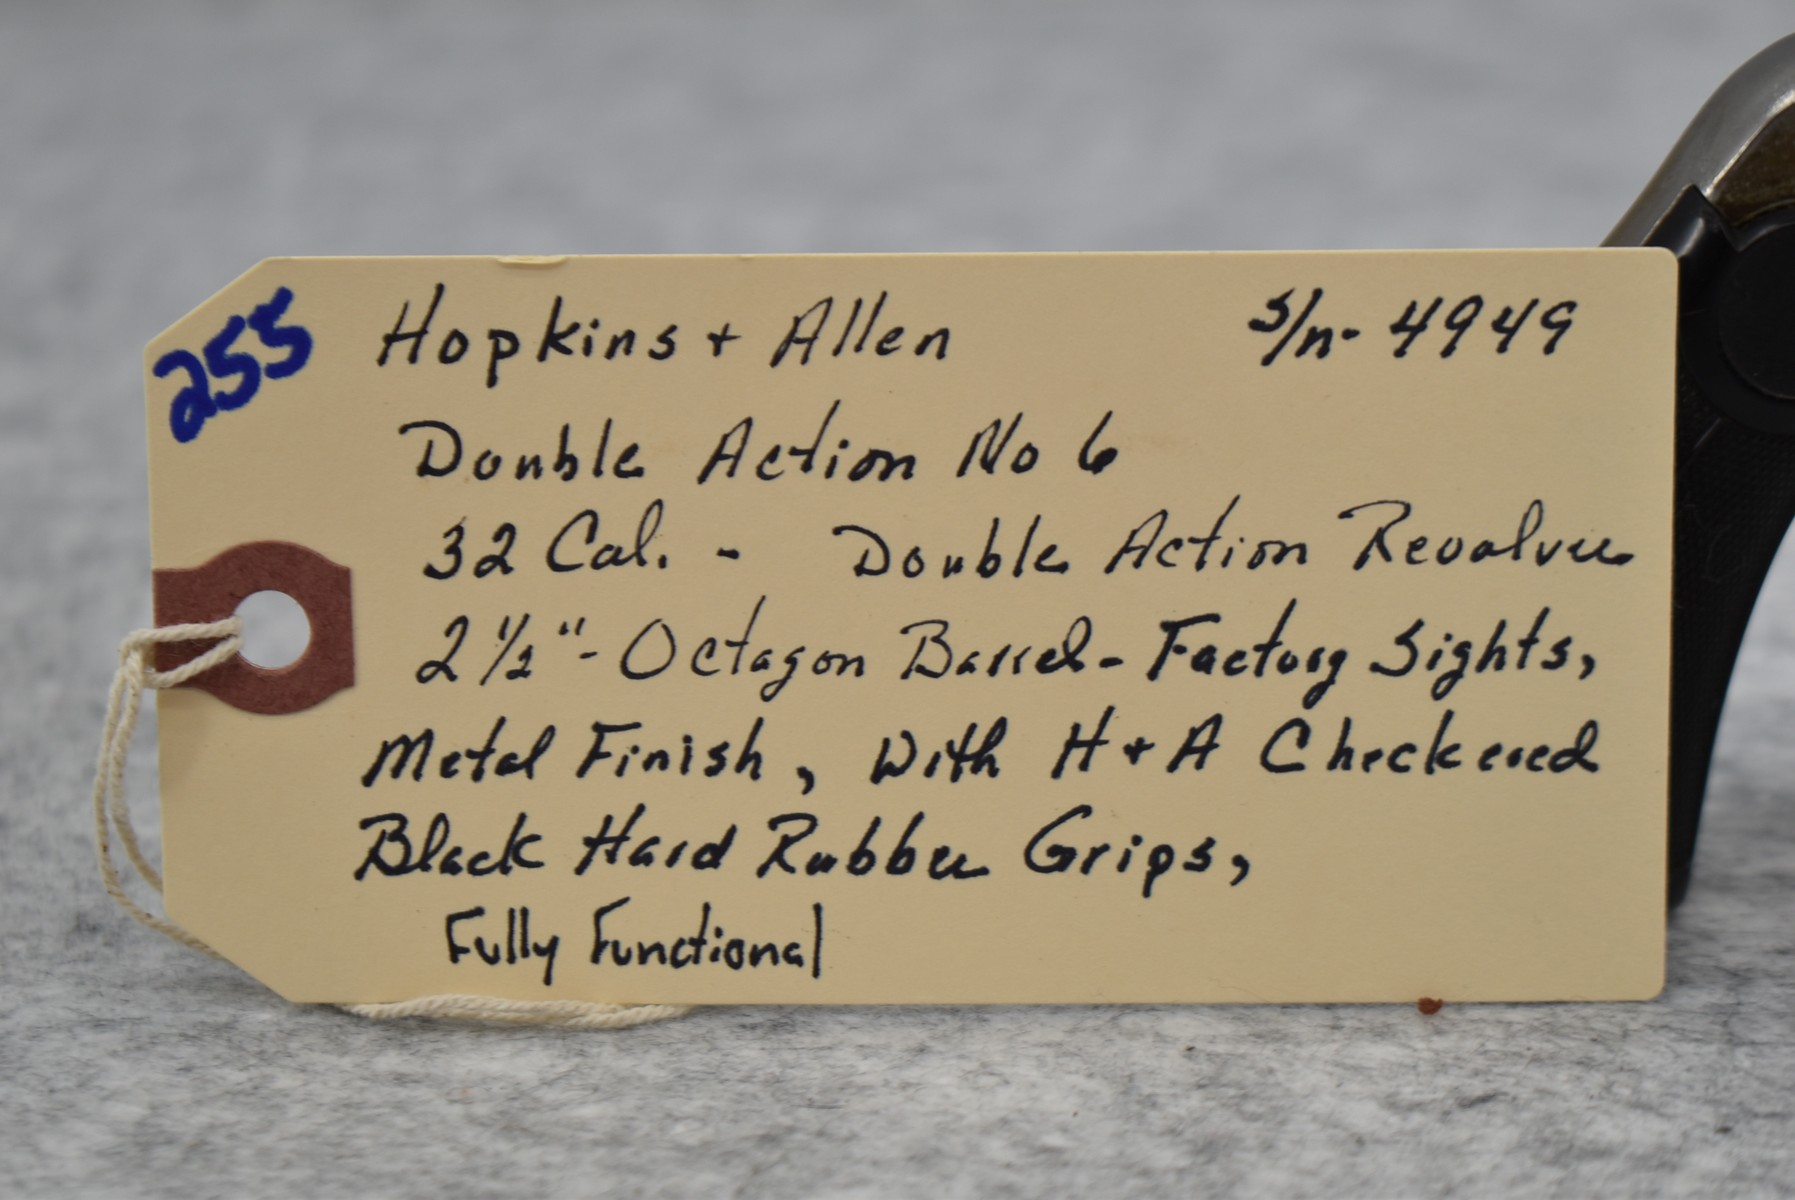 255
Hopkins + Allen s/n- 4949
Double Action No 6
32 Cal. - Double Action Revolver
2 1/2" - Octagon Barrel - Factory Sights,
Metal Finish, With H + A Checkered
Black Hard Rubber Grips,
Fully Functional